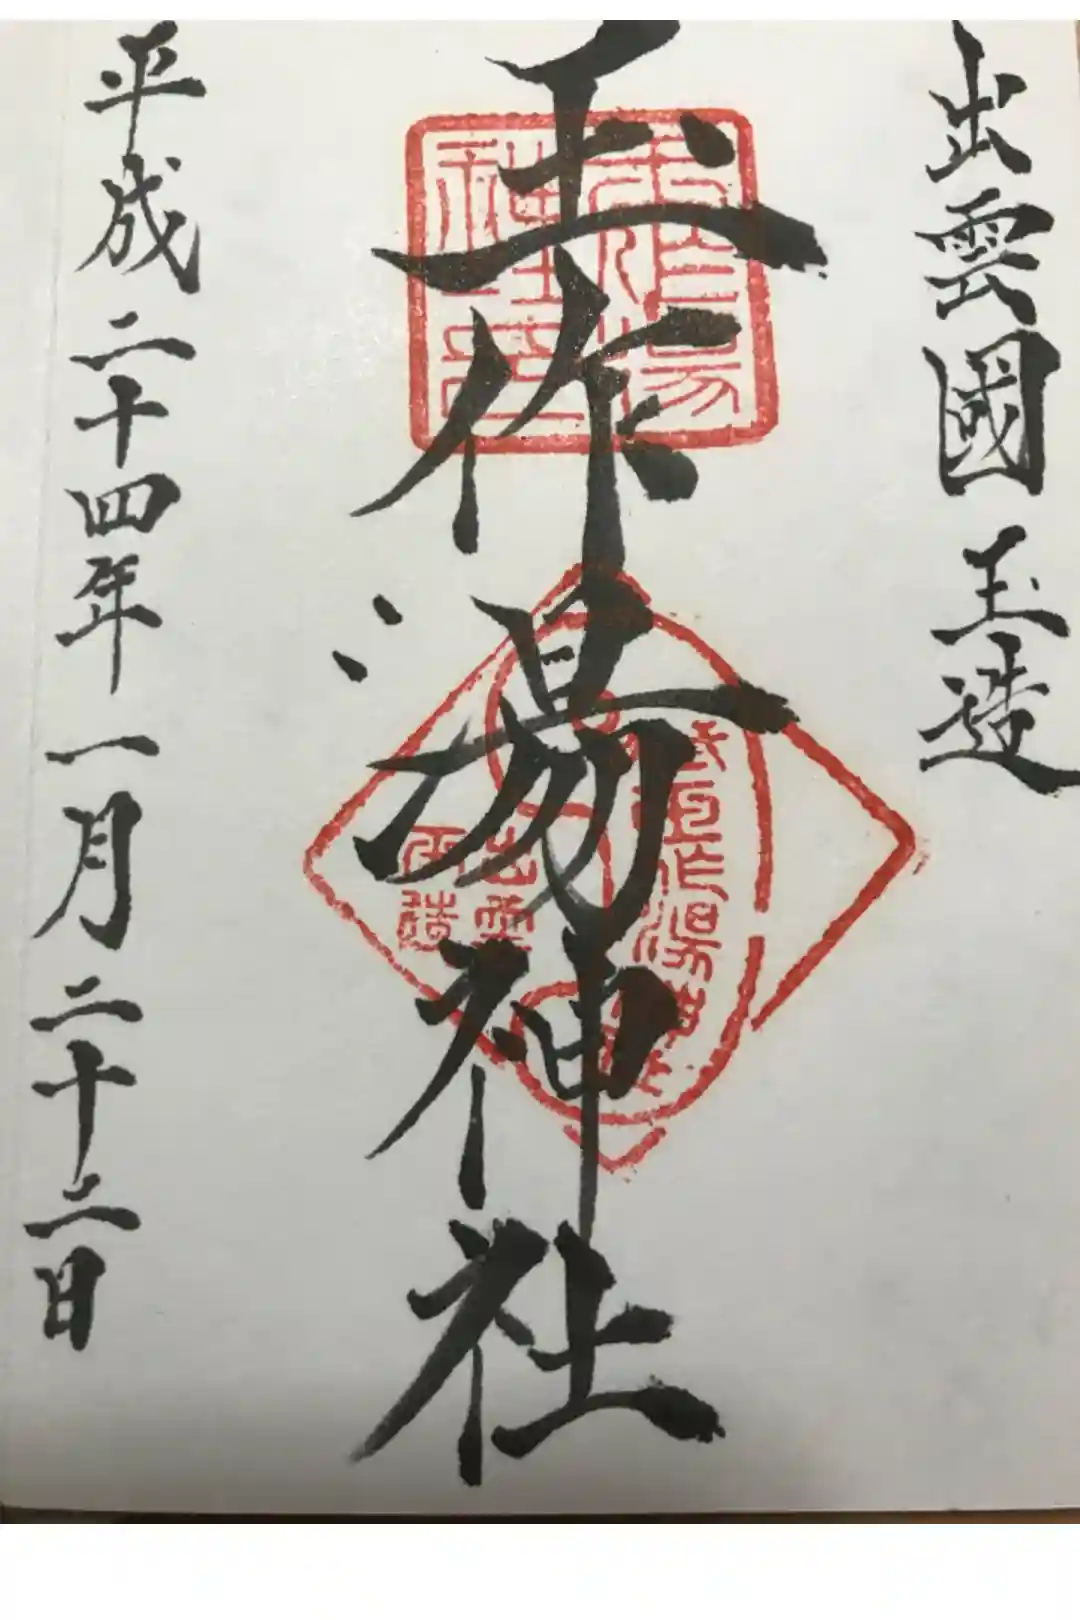 出雲國玉造
玉作湯神社
平成二十四年一月二十二日
玉作湯
神社印
出雲
玉造